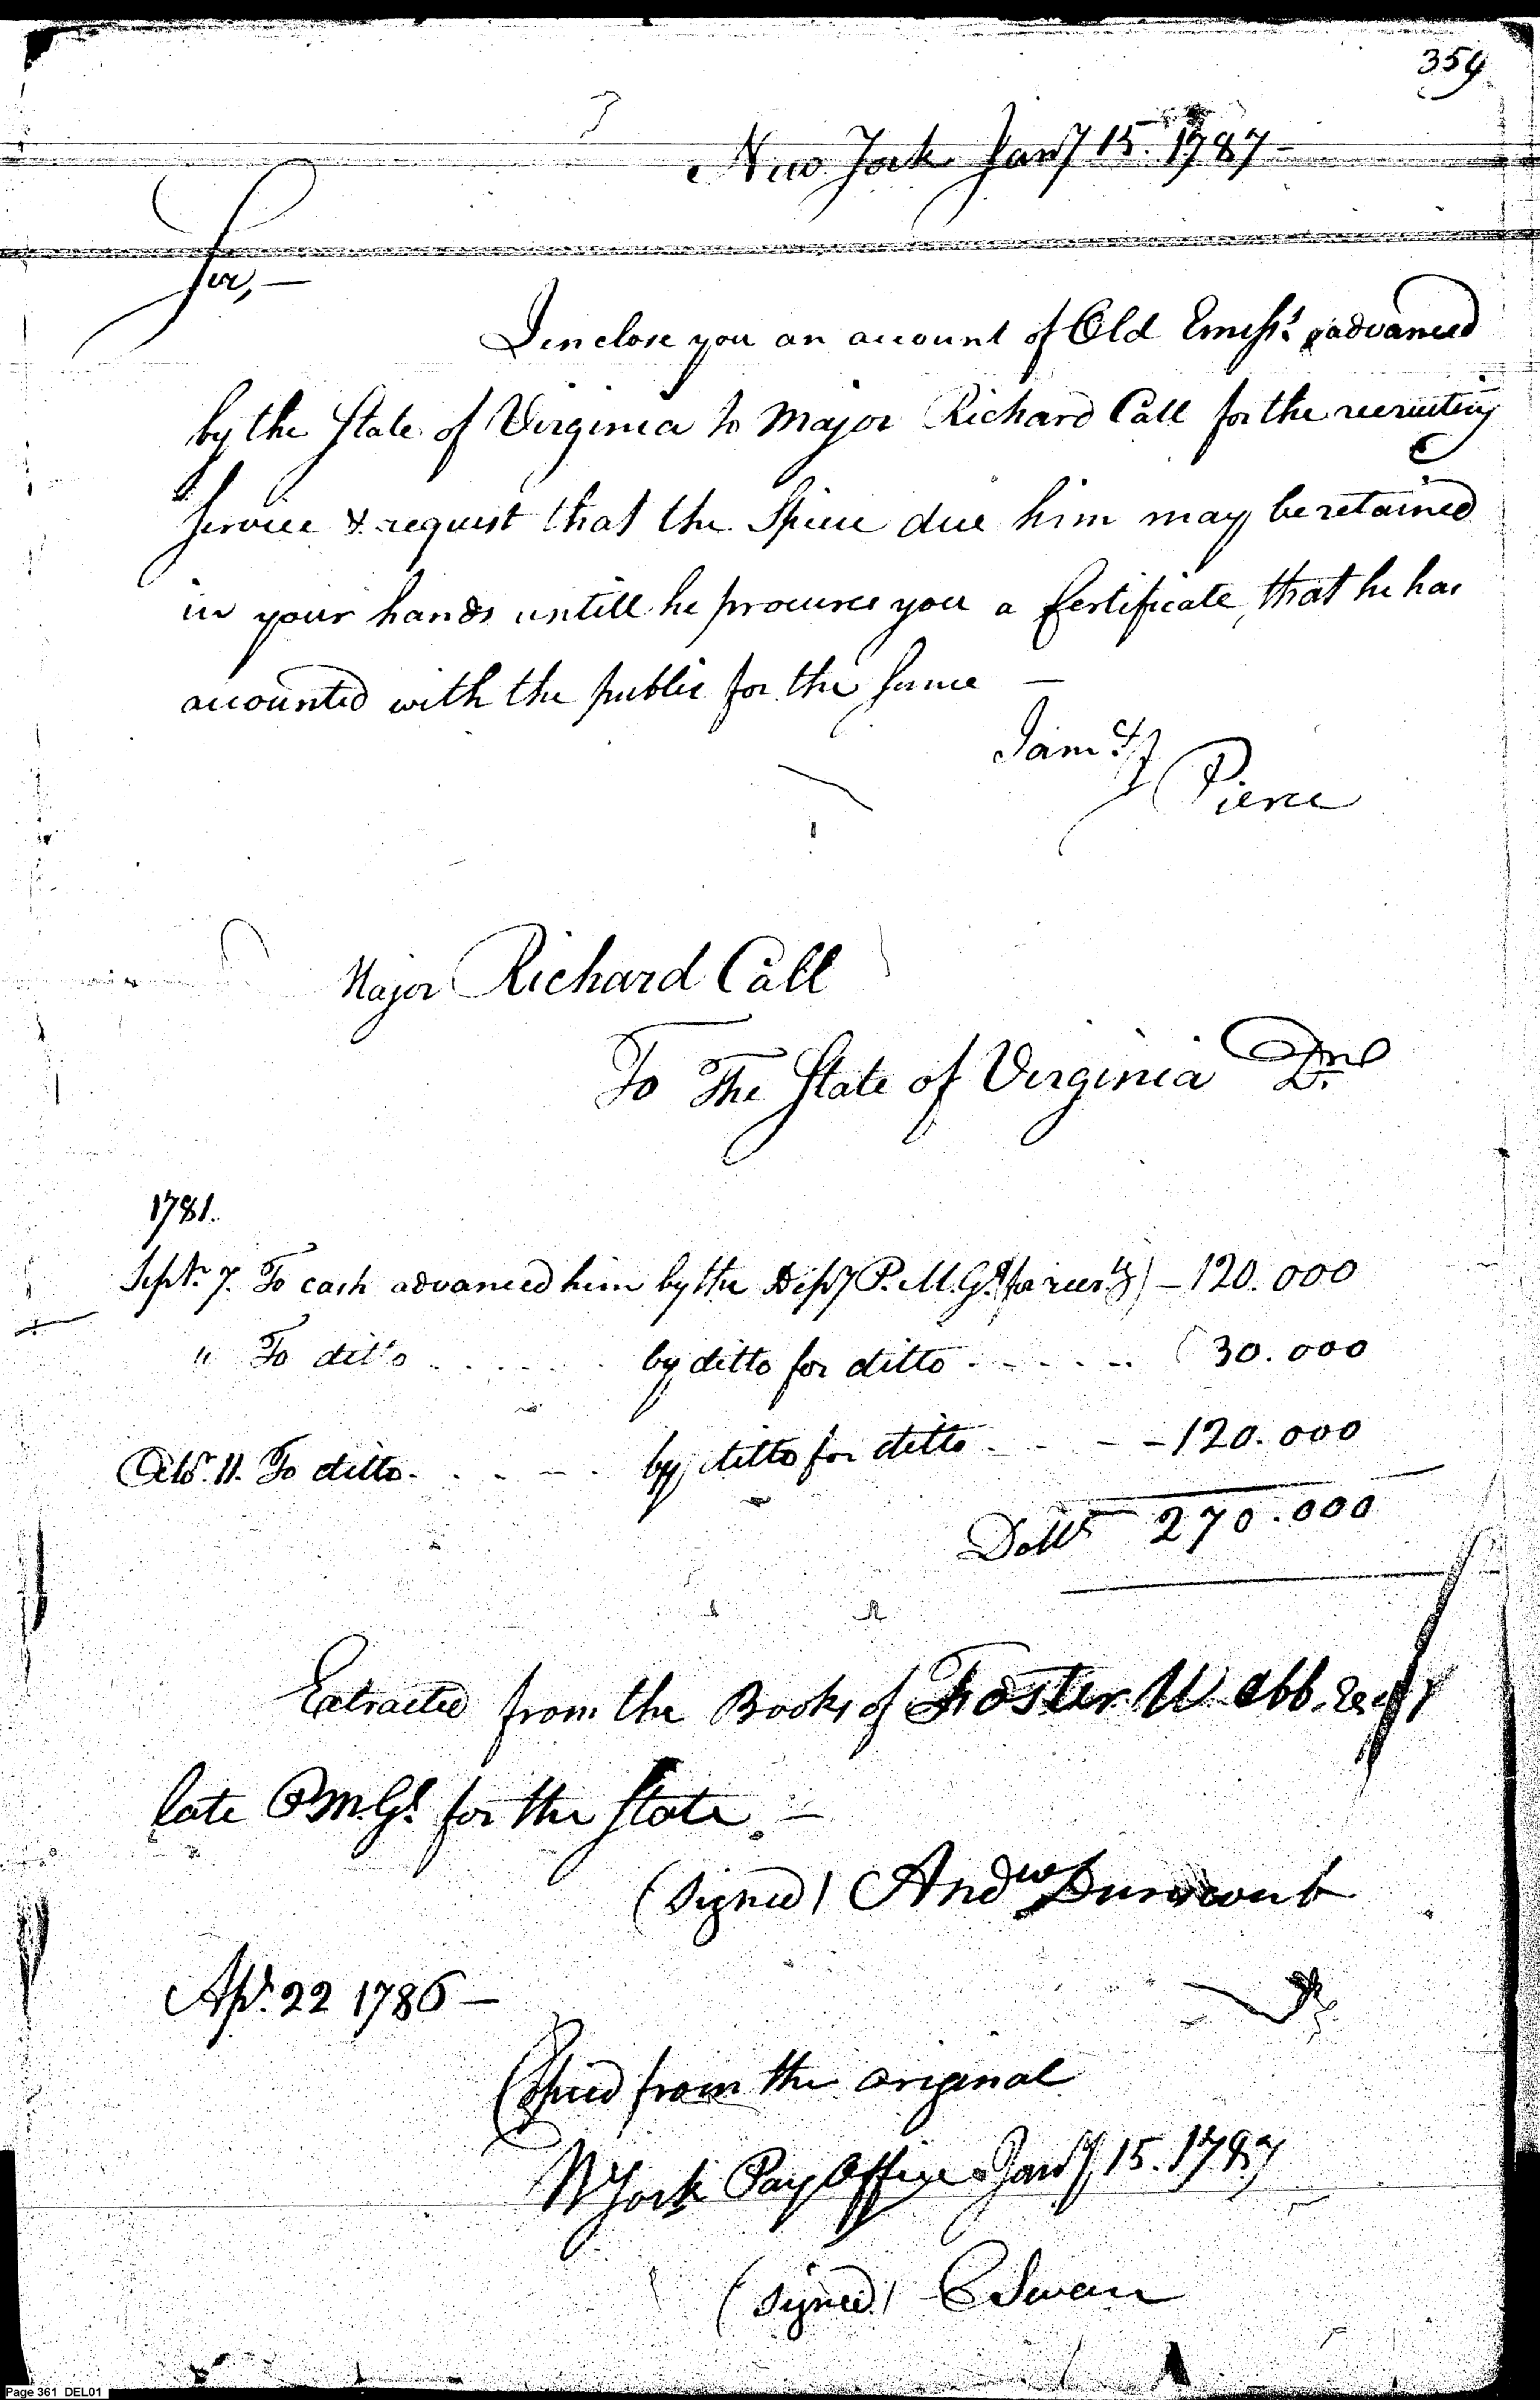 359
New York Jany 15. 1787 -
Sir, —
I enclose you an account of Old Emisss. advanced
by the State of Virginia to Major Richard Call for the recruiting
Service & request that the Specie due him may be retained
in your hands untill he procures you a Certificate, that he has
accounted with the public for the same —
I am &c
J Pierce
Major Richard Call
To The State of Virginia Dr.
1781.
Sept. 7. To cash advanced him by the Depy P.M.Gl. (for recrtg) - 120.000
" To ditto . . . . . . by ditto for ditto . . . . . . 30.000
Octo. 11. To ditto . . . . . by ditto for ditto . . . - 120.000
Dolls 270.000
Extracted from the Books of Foster Webb, Esqr
late P.M.Gl. for the State. —
(signed) Andw Dunscomb
Apl. 22 1786 —
Copied from the original
N York Pay Office Jany 15. 1787
(signed) C Swan
Page 361 DEL01